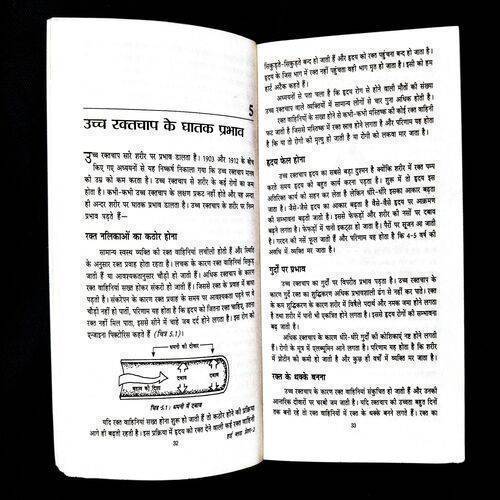 5
उच्च रक्तचाप के घातक प्रभाव
उच्च रक्तचाप सारे शरीर पर प्रभाव डालता है। 1903 और 1912 के बीच
किए गए अध्ययनों से यह निष्कर्ष निकाला गया कि उच्च रक्तचाप मानव
की उम्र को कम करता है। उच्च रक्तचाप से शरीर के कई रोगों का जन्म
होता है। कभी-कभी उच्च रक्तचाप के लक्षण प्रकट नहीं होते हैं और यह
ही अन्दर शरीर पर घातक प्रभाव डालता है। उच्च रक्तचाप के शरीर पर निम्न
प्रभाव पड़ते हैं—
रक्त नलिकाओं का कठोर होना
सामान्य स्वस्थ व्यक्ति की रक्त वाहिनियां लचीली होती हैं और स्थिति
के अनुसार रक्त प्रवाह होता रहता है। लचक के कारण रक्त वाहिनियां सिकुड़
जाती हैं या आवश्यकतानुसार चौड़ी हो जाती हैं। अधिक रक्तचाप के कारण
रक्त वाहिनियां सख्त होकर संकरी हो जाती हैं। जिससे रक्त प्रवाह में बाधा
पड़ता है। संकीर्णन के कारण रक्त प्रवाह के समय पर आवश्यकता पड़ने पर ये
चौड़ी नहीं हो पातीं, परिणाम यह होता है कि हृदय को जितना रक्त चाहिए, उतना
रक्त नहीं मिल पाता, इससे सीने में चाहे जब दर्द होने लगता है। इस रोग को
एन्जाइना पिक्टोरिस कहते हैं (चित्र 5.1)।
धमनी की दीवार
दबाव
दबाव
बहाव की दिशा
चित्र 5.1: धमनी में दबाव
यदि रक्त वाहिनियां सख्त होना शुरू हो जाती हैं तो कठोर होने की प्रक्रिया
आगे ही बढ़ती रहती है। इस प्रक्रिया में हृदय को रक्त देने वाली कई रक्त वाहिनी
32
सिकुड़ते-सिकुड़ते बन्द हो जाती हैं और हृदय को रक्त पहुंचना बन्द हो जाता है।
हृदय के जिस भाग में रक्त नहीं पहुंचता वही भाग मृत हो जाता है। इसी को हम
हार्ट अटैक कहते हैं।
अध्ययनों से पता चला है कि हृदय रोग से होने वाली मौतों की संख्या
उच्च रक्तचाप वाले व्यक्तियों में सामान्य लोगों से चार गुना अधिक होती है।
रक्त वाहिनियों के सख्त होने से कभी-कभी मस्तिष्क की कोई रक्त वाहिनी
फट जाती है जिससे मस्तिष्क में रक्त स्राव होने लगता है और परिणाम यह होता
है कि या तो रोगी की मृत्यु हो जाती है या रोगी को लकवा मार जाता है।
हृदय फेल होना
उच्च रक्तचाप हृदय का सबसे बड़ा दुश्मन है क्योंकि शरीर में रक्त पम्प
करते समय हृदय को बहुत कार्य करना पड़ता है। शुरू में तो हृदय इस
अतिरिक्त कार्य को सहन कर लेता है लेकिन धीरे-धीरे इसका आकार बढ़ता
जाता है। जैसे-जैसे हृदय का आकार बढ़ता है वैसे-वैसे हृदय पर आक्रमण
की सम्भावना बढ़ती जाती है। इससे फेफड़ों और शरीर की नसों पर दबाव
बढ़ने लगता है। फेफड़ों में पानी इकट्ठा हो जाता है। पैरों में सूजन आ जाती
है। गरदन की नसें फूल जाती हैं और परिणाम यह होता है कि 4-5 वर्ष की
अवधि में व्यक्ति मर जाता है।
गुर्दों पर प्रभाव
उच्च रक्तचाप का गुर्दों पर विपरीत प्रभाव पड़ता है। उच्च रक्तचाप के
कारण गुर्दे रक्त का शुद्धिकरण अधिक प्रभावशाली ढंग से नहीं कर पाते। रक्त
के कम शुद्धिकरण के कारण शरीर में विषैले पदार्थ और नमक जमा होने लगते
हैं तथा शरीर में पानी भी एकत्रित होने लगता है। इससे हृदय रोगों की सम्भावना
बढ़ जाती है।
अधिक रक्तचाप के कारण धीरे-धीरे गुर्दों की कोशिकाएं नष्ट होने लगती
हैं। रोगी के मूत्र में एलब्यूमिन आने लगता है। परिणाम यह होता है कि शरीर
में प्रोटीन की कमी हो जाती है और कुछ ही वर्षों में व्यक्ति मर जाता है।
रक्त के थक्के बनना
उच्च रक्तचाप के कारण रक्त वाहिनियां संकुचित हो जाती हैं और उनकी
आन्तरिक दीवारों पर चरबी जम जाती है। यदि रक्तचाप की उच्चता बहुत दिनों
तक बनी रहे तो रक्त वाहिनियों में रक्त के थक्के बनने लगते हैं। रक्त का
33